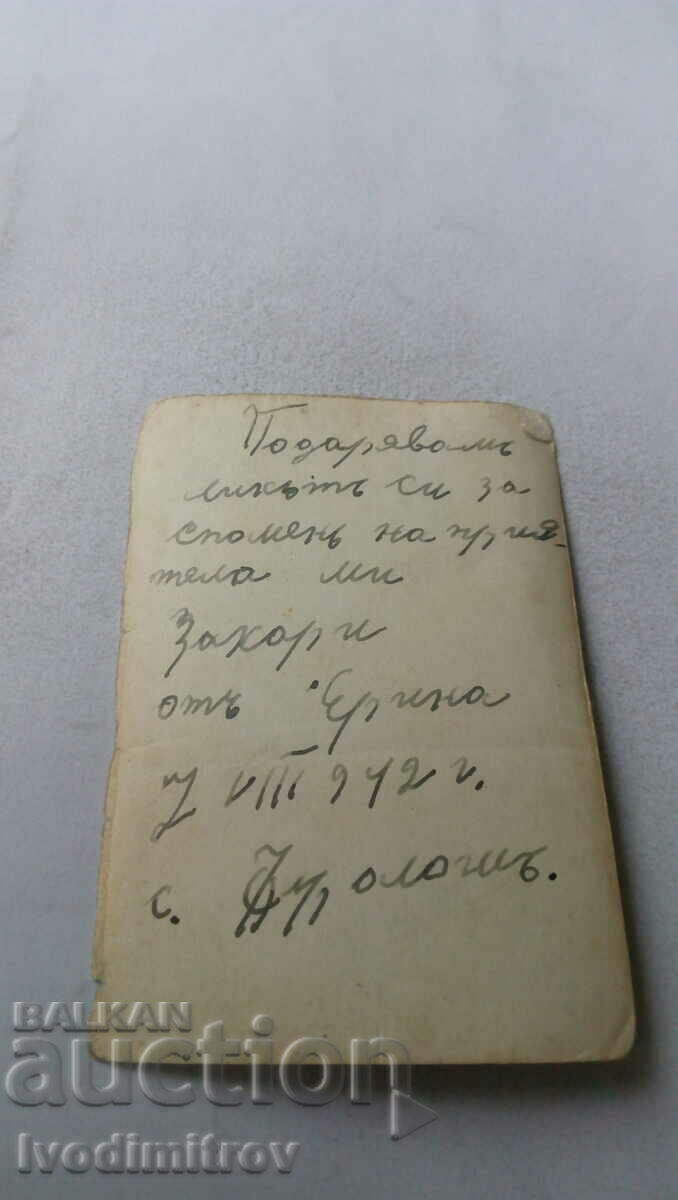 Подарявамъ
ликътъ си за
споменъ на прия-
тела ми
Захари
отъ Ерина
7 VIII 942 г.
с.
BALKAN
auction
Ivodimitrov